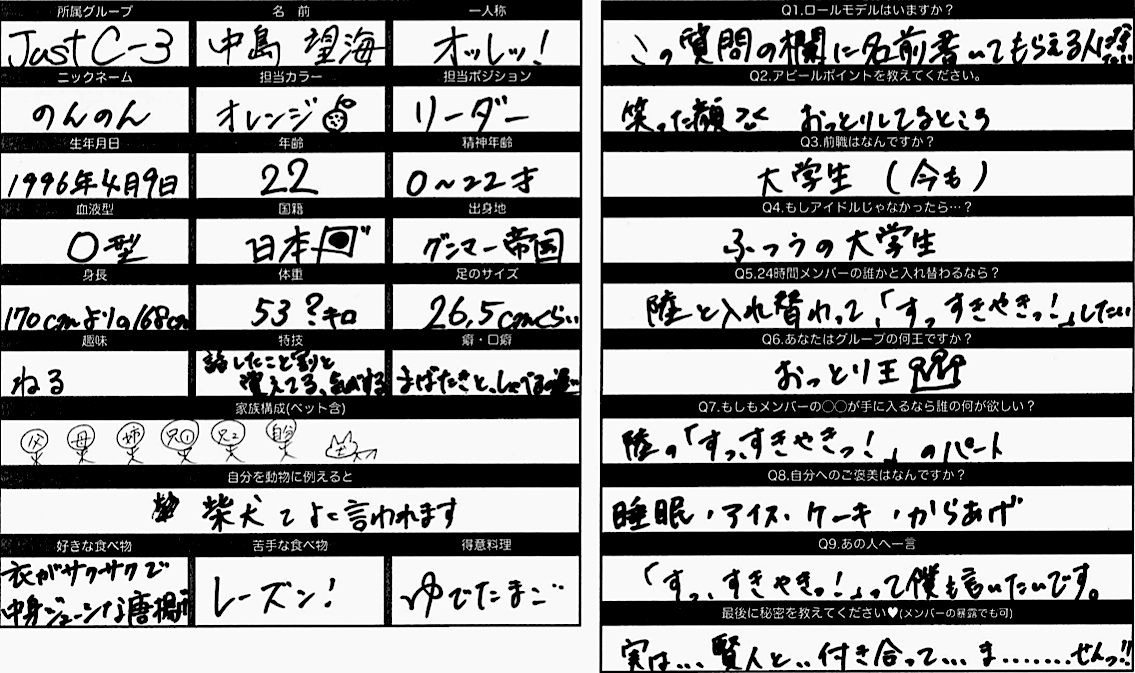 所属グループ
Just C-3
名 前
中島 望海
一人称
オッレッ!
ニックネーム
のんのん
担当カラー
オレンジ
担当ポジション
リーダー
生年月日
1996年4月9日
年齢
22
精神年齢
0~22才
血液型
O型
国籍
日本
出身地
グンマー帝国
身長
170cmよりの168cm
体重
53?キロ
足のサイズ
26.5cmくらい
趣味
ねる
特技
話したこと割と
覚えてる、気がする
癖・口癖
まばたきと、しゃべるの
家族構成(ペット含)
父 母 姉 兄1 兄2 自分
自分を動物に例えると
柴犬てよく言われます
好きな食べ物
衣がサクサクで
中身ジューシな唐揚げ
苦手な食べ物
レーズン!
得意料理
ゆでたまご
Q1.ロールモデルはいますか?
この質問の欄に名前書いてもらえる人
Q2.アピールポイントを教えてください。
笑った顔 おっとりしてるところ
Q3.前職はなんですか?
大学生 (今も)
Q4.もしアイドルじゃなかったら…?
ふつうの大学生
Q5.24時間メンバーの誰かと入れ替わるなら?
陸と入れ替わって、「すっ、すきやきっ!」したい
Q6.あなたはグループの何王ですか?
おっとり王
Q7.もしもメンバーの○○が手に入るなら誰の何が欲しい?
陸の「すっ、すきやきっ!」のパート
Q8.自分へのご褒美はなんですか?
睡眠・アイス・ケーキ・からあげ
Q9.あの人へ一言
「すっ、すきやきっ!」って僕も言いたいです。
最後に秘密を教えてください♥(メンバーの暴露でも可)
実は...賢人と..付き合って...ま.......せんっ!!